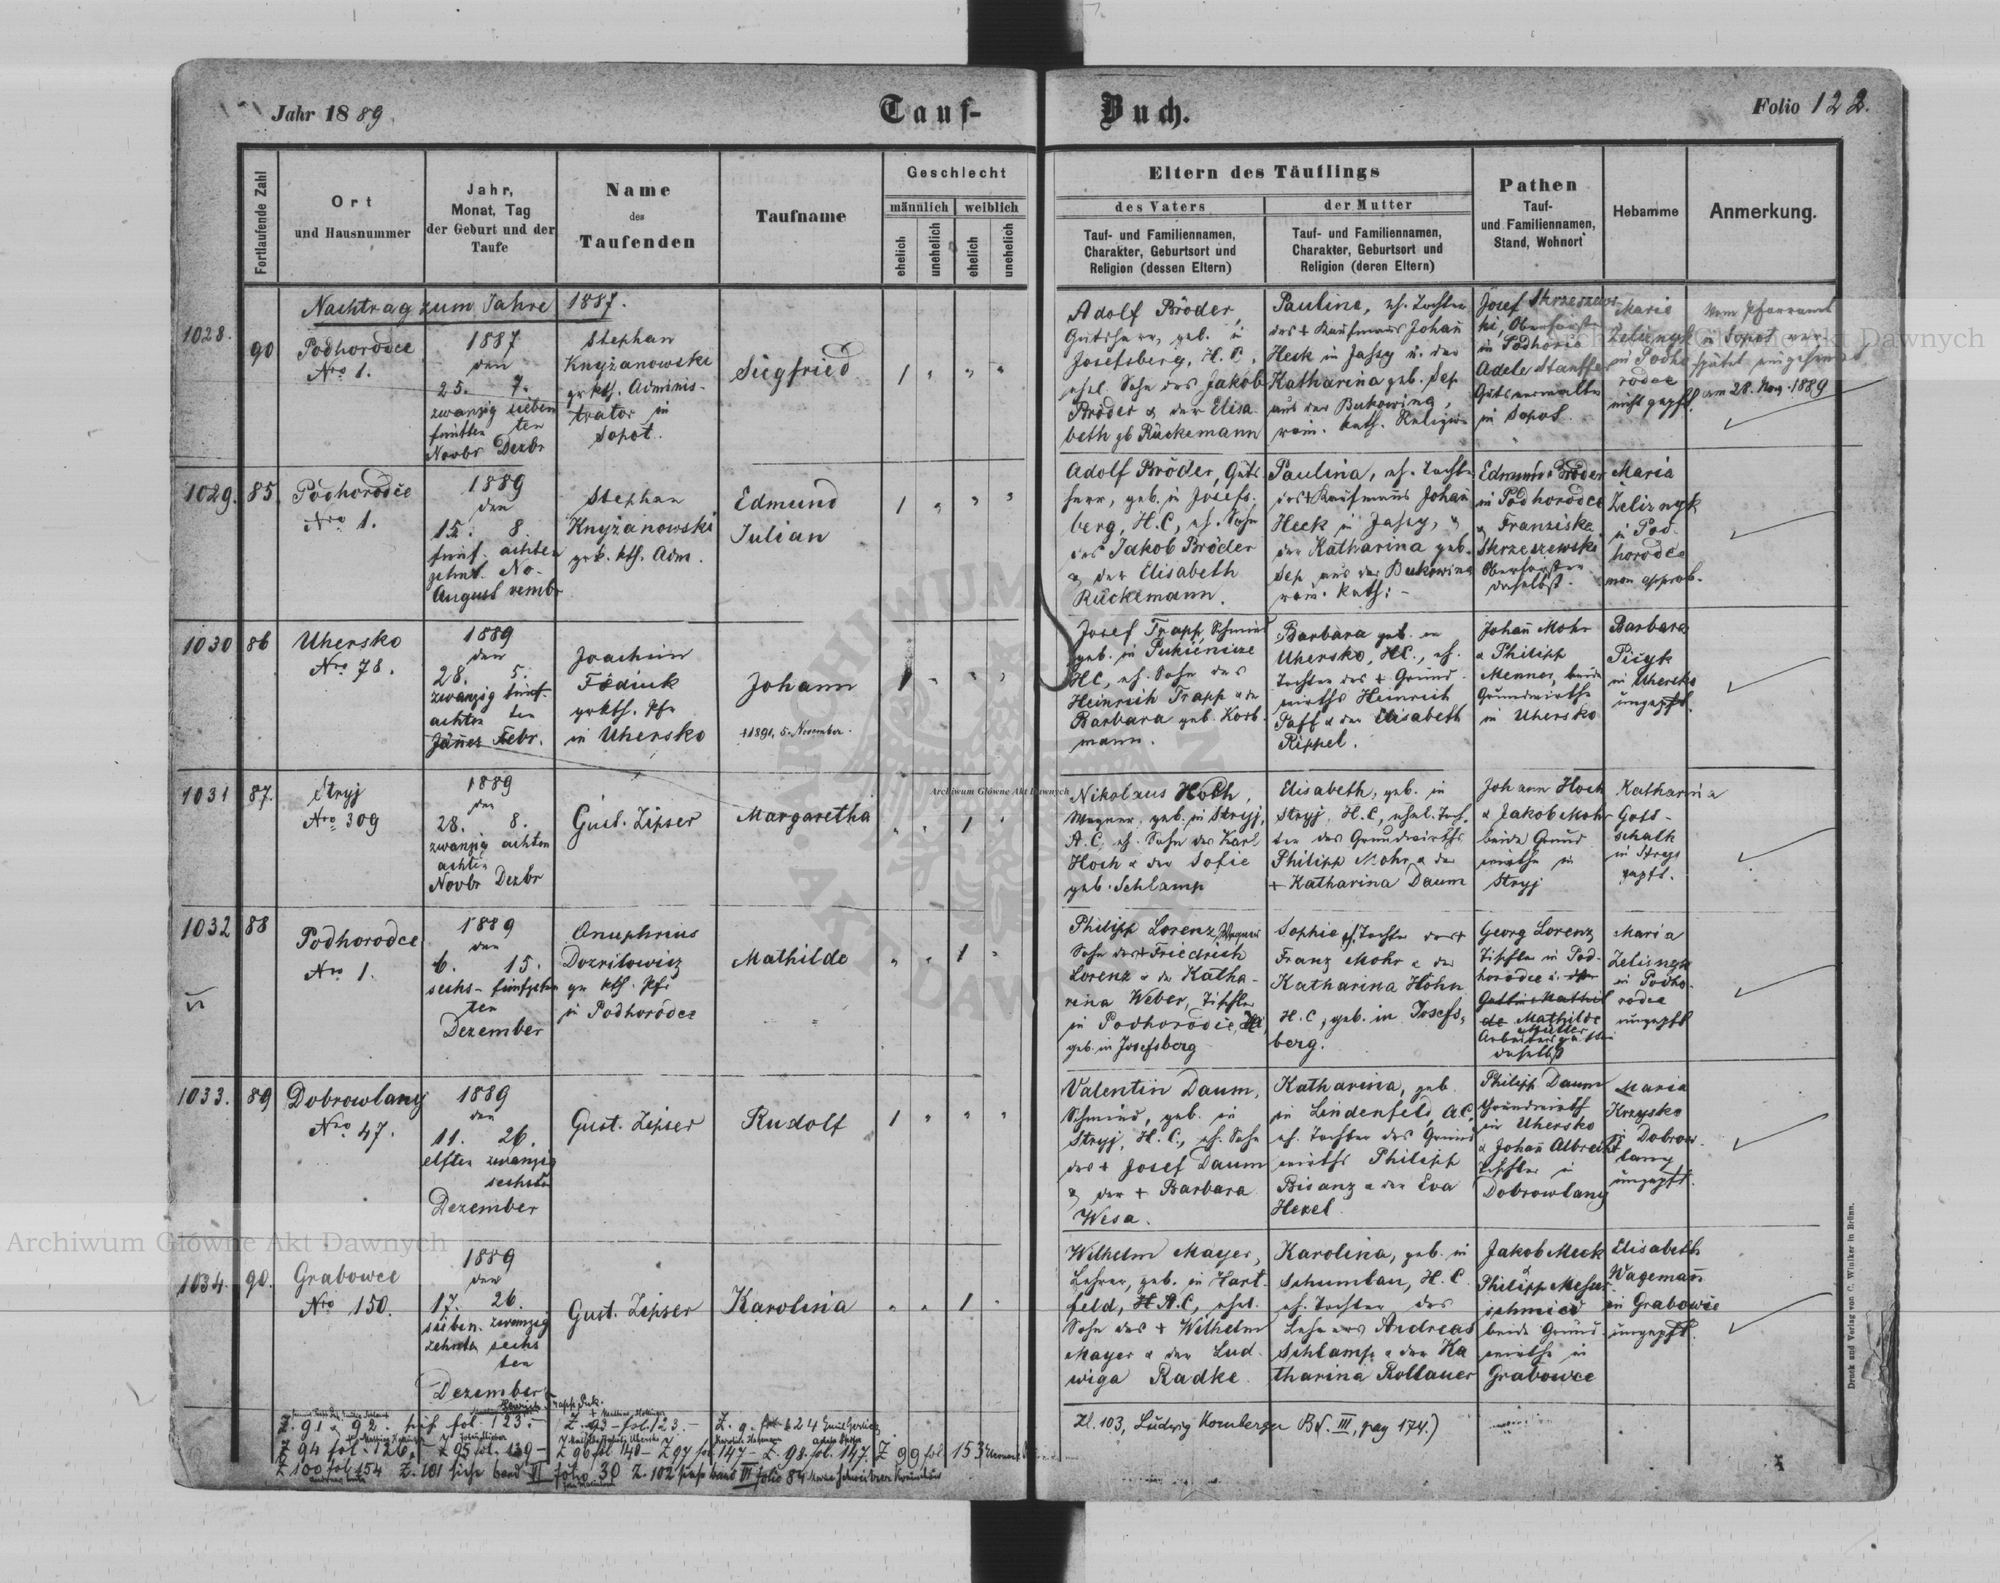 Jahr 1889.
Tauf-
Buch.
Folio 122.
Fortlaufende Zahl
Ort
und Hausnummer
Jahr,
Monat, Tag
der Geburt und der
Taufe
Name
des
Taufenden
Taufname
Geschlecht
männlich
weiblich
ehelich
unehelich
ehelich
unehelich
Eltern des Täuflings
des Vaters
Tauf- und Familiennamen,
Charakter, Geburtsort und
Religion (dessen Eltern)
der Mutter
Tauf- und Familiennamen,
Charakter, Geburtsort und
Religion (deren Eltern)
Pathen
Tauf-
und Familiennamen,
Stand, Wohnort
Hebamme
Anmerkung.
Nachtrag zum Jahre 1887.
1028.
90
Podhorodce
Nro 1.
1887
den
25. 7.
zwanzig sieben
fünften ten
Novbr Dezbr
Stephan
Knyżanowski
gr. kth. Adminis-
trator in
Sopot.
Siegfried
1
Adolf Bröder,
Gutsherr, geb. in
Josefsberg, H. C.,
ehel. Sohn des Jakob
Bröder & der Elisa-
beth gb Rückemann
Paulina, eh. Tochter
des + Kaufmanns Johañ
Heck in Jassy u. der
Katharina geb. Sep
aus der Bukowina,
röm. kath. Religion
Josef Skrzeszews-
ki, Oberförster
in Podhorce
Adele Stauffer
Gutsverwalter
in Sopot.
Maria
Zeliznyk
in Podho-
rodce
nicht gepft.
Vom Pfarramt
in Sopot ver-
spätet eingesandt
am 28. Nov. 1889
1029.
85.
Podhorodce
Nro 1.
1889
den
15. 8.
fünf- achten
zehnt. No-
August vembr
Stephan
Knyżanowski
grk. kth. Adm.
Edmund
Julian
1
Adolf Bröder, Guts-
herr, geb. in Josefs-
berg, H. C, eh. Sohn
des Jakob Bröder
& der Elisabeth
Rückemann.
Paulina, eh. Tochter
des + Kaufmañs Johañ
Heck in Jassy, &
der Katharina geb.
Sep aus der Bukowina
röm. kath: -
Edmund Bröder
in Podhorodce
& Franziska
Skrzeszewski
Oberförster
daselbst.
Maria
Zeliznyk
in Pod-
horodce
non approb.
1030
86
Uhersko
Nro 78.
1889
den
28. 5.
zwanzig fünf-
achten ten
Jäñer Febr.
Joachim
Fediuk
gr kth. Pfr
in Uhersko
Johann
+ 1891, 5. November.
1
Josef Trapp, Schmied
geb. in Pukienicze
HC, eh. Sohn des
Heinrich Trapp & der
Barbara geb. Korb-
mann.
Barbara geb. in
Uhersko, HC., eh.
Tochter des + Grund-
wirths Heinrich
Paff & der Elisabeth
Rippel.
Johañ Mohr
& Philipp
Menner, beide
Grundwirthe
in Uhersko
Barbara
Picyk
in Uhersko
ungepft.
1031
87.
Stryj
Nro 309
1889
den
28. 8.
zwanzig achten
achten
Novbr Dezbr
Gust. Zipser
Margaretha
1
Nikolaus Hoch,
Wagner, geb. in Stryj,
A. C, eh. Sohn des Karl
Hoch & der Sofie
geb. Schlamp
Elisabeth, geb. in
Stryj, H. C, ehel. Toch-
ter des Grundwirths
Philipp Mohr & der
+ Katharina Daum
Johann Hoch
& Jakob Mohr
beide Grund-
wirthe in
Stryj
Katharina
Gott-
schalk
in Stryj
gepft.
1032
88
Podhorodce
Nro 1.
1889
den
6. 15.
sechs- fünfzehn
ten
Dezember
Onuphrius
gr kth. Pfr
in Podhorodce
Mathilde
1
Philipp Lorenz, Wagner
Sohn des + Friedrich
Lorenz & der Katha-
rina Weber, Tischler
in Podhorodce, HC,
geb. in Josefsberg
Sophie eh. Tochter des +
Franz Mohr & der
Katharina Höhn
H. C, geb. in Josefs-
berg.
Georg Lorenz
Tischler in Pod-
horodce & der
Gattin Mathil
de Mathilde
Müller
daselbst
Maria
Zelisnyk
in Podho-
rodce
ungepft
1033.
89
Dobrowlany
Nro 47.
1889
den
11. 26.
elften zwanzig
sechsten
Dezember
Gust. Zipser
Rudolf
1
Valentin Daum,
Schmied, geb. in
Stryj, H. C., eh. Sohn
des + Josef Daum
& der + Barbara
Wesa.
Katharina, geb.
in Lindenfeld, A.C,
eh. Tochter des Grund-
wirths Philipp
Bisanz & der Eva
Hexel.
Philipp Daum
Grundwirth
in Uhersko
& Johañ Albrecht
Tischler in
Dobrowlany
Maria
Krzysko
in Dobrow-
lany
ungepft.
1034.
90.
Grabowce
Nro 150.
1889
den
17. 26.
sieben- zwanzig
zehnten sechs
ten
Dezember
Gust. Zipser
Karolina
1
Wilhelm Mayer,
Lehrer, geb. in Hart-
feld, A.C, ehel.
Sohn des + Wilhelm
Mayer & der Lud-
wiga Radke.
Karolina, geb. in
Schumlau, H. C.
eh. Tochter des
Lehrers Andreas
Schlamp & der Ka
tharina Rollauer
Jakob Meck
&
Philipp Messer-
schmied
beide Grund-
wirthe in
Grabowce
Elisabeth
Wagemañ
in Grabowce
ungepft.
Z. 91 & 92. fol. 123. - Z. 93 - fol. 123. -
Z 94 fol. 126. - Z 95 fol. 139 - Z 96 fol 140 - Z 97 fol 147 - Z. 98. fol. 147. Z 99 fol 153
Z 100 fol 154 Z. 101 siehe band VI folio 30 Z. 102 siehe band VI folio 84
Zl. 103, Ludwig Komberger Bd. III, pag 174.)
Druck und Verlag von C. Winiker in Brünn.
Archiwum Główne Akt Dawnych
Archiwum Główne Akt Dawnych
Archiwum Główne Akt Dawnych